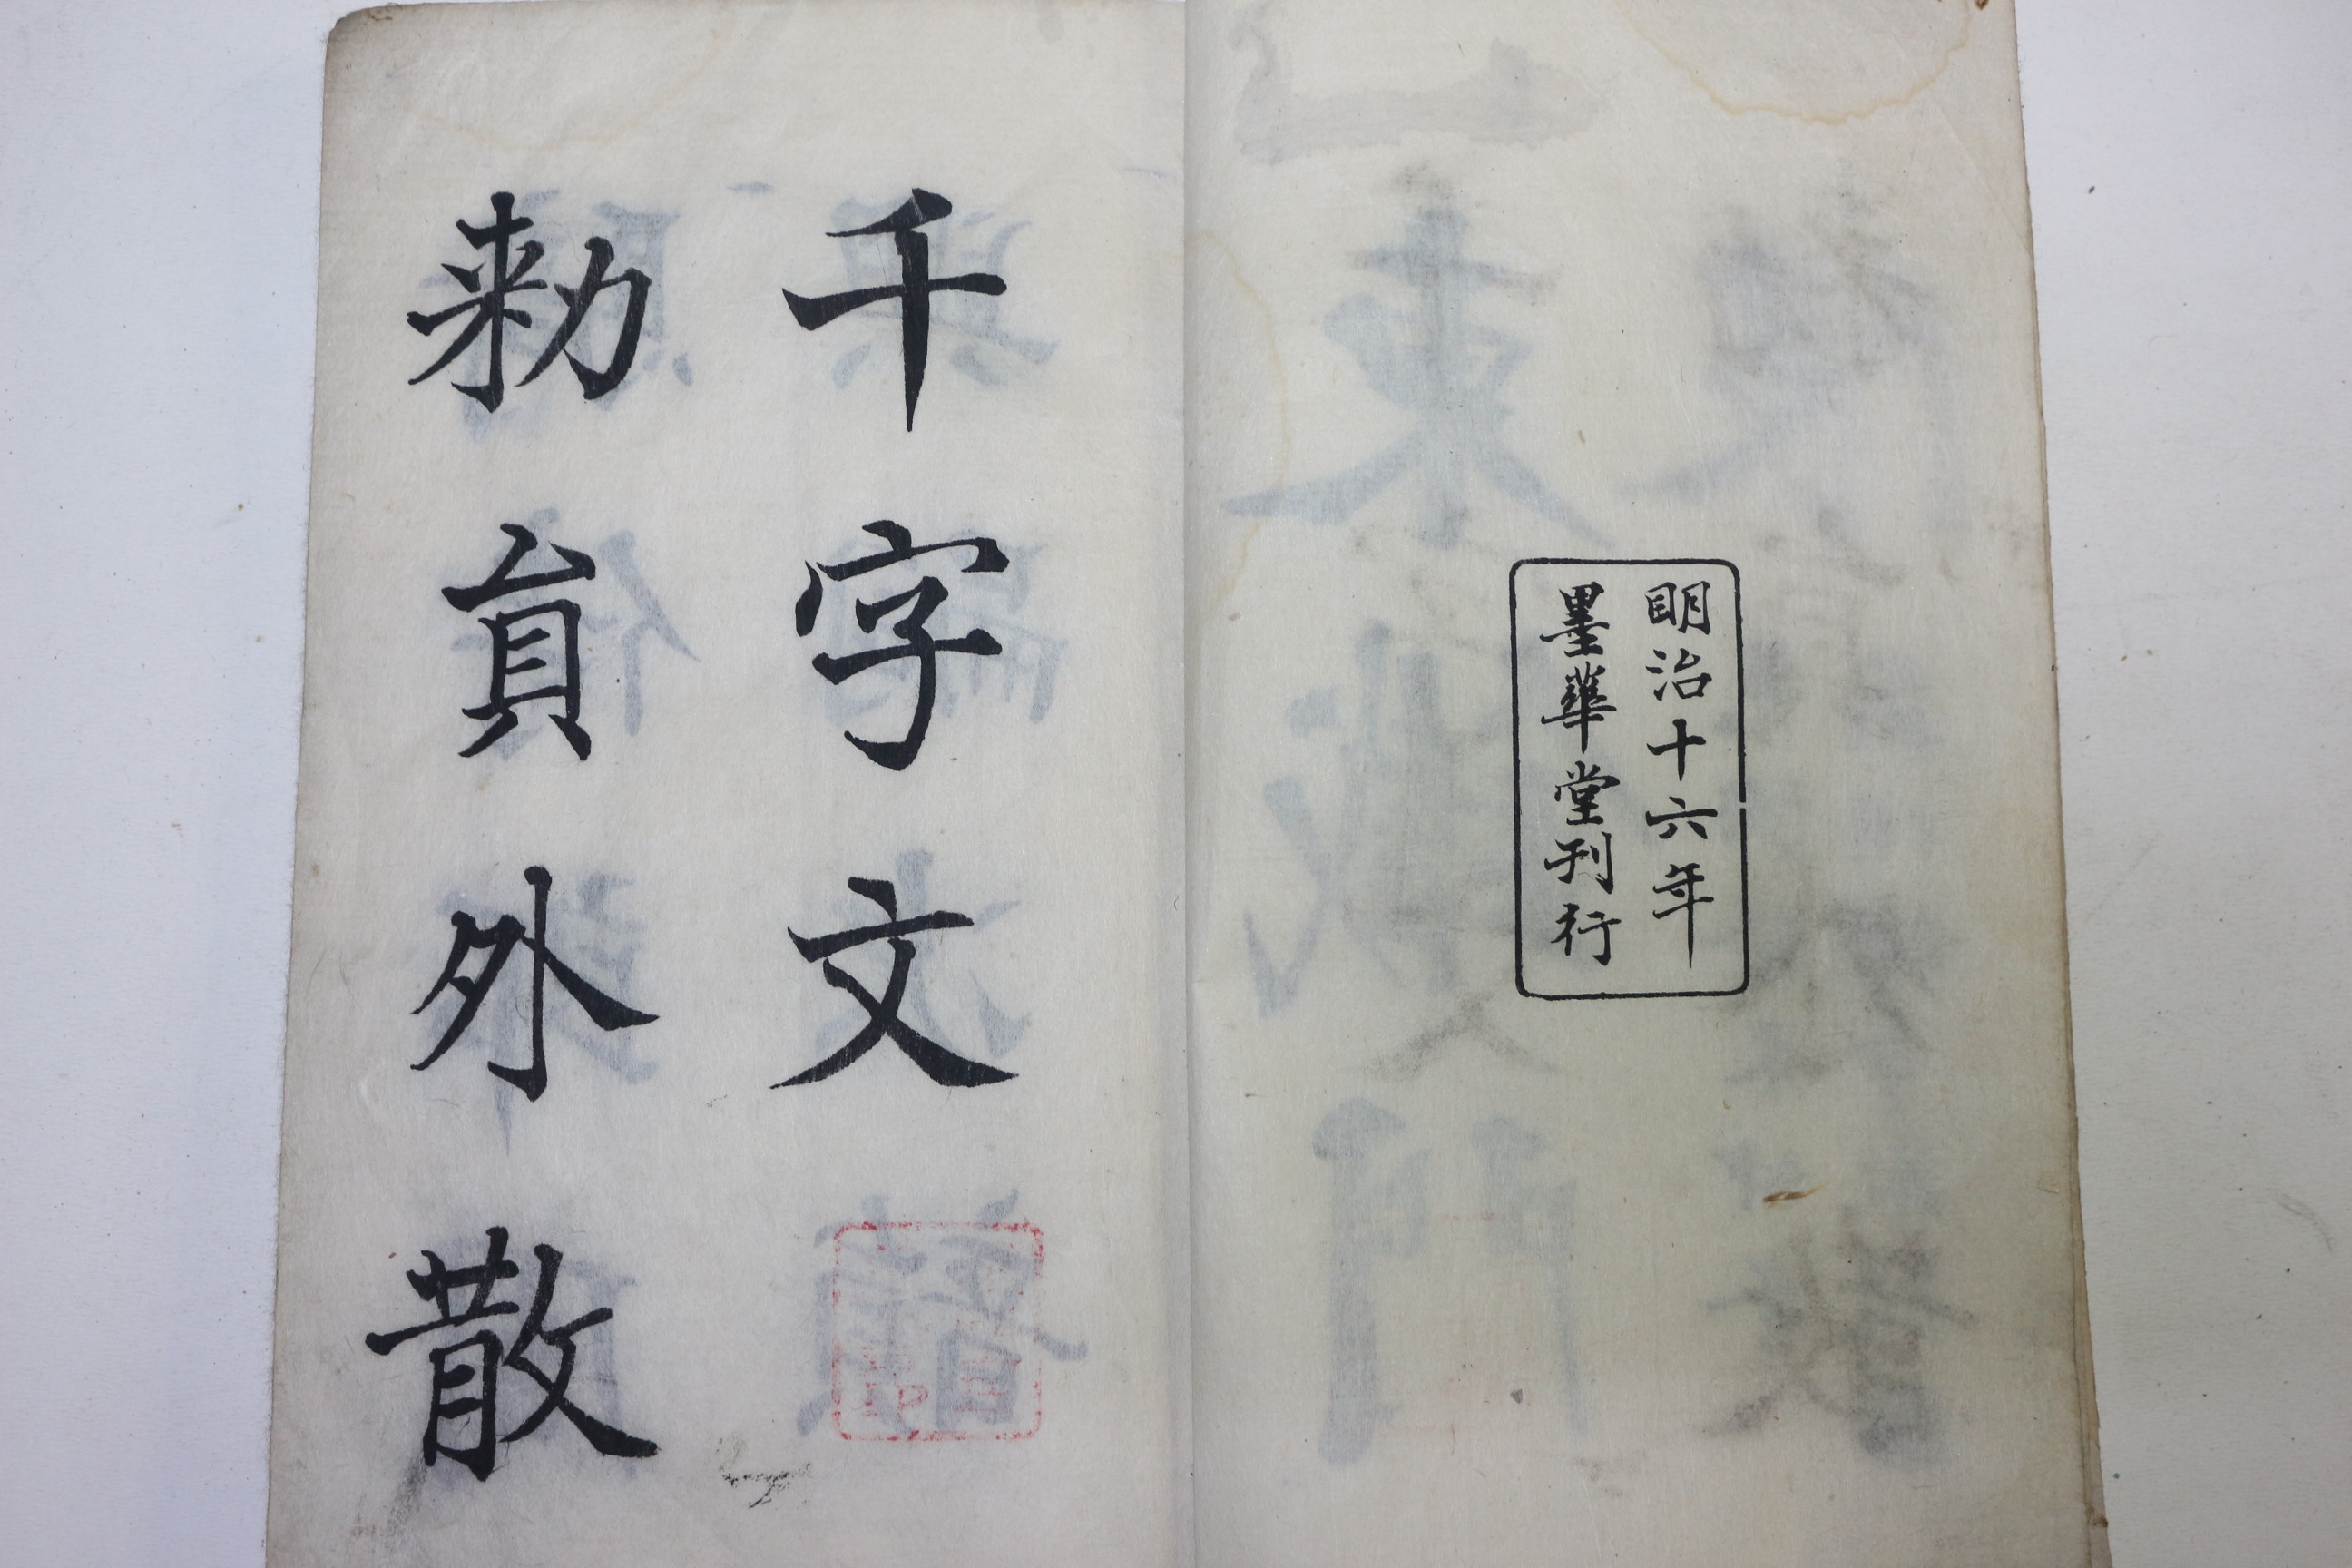 明治十六年
墨華堂刊行
千字文
勑員外散